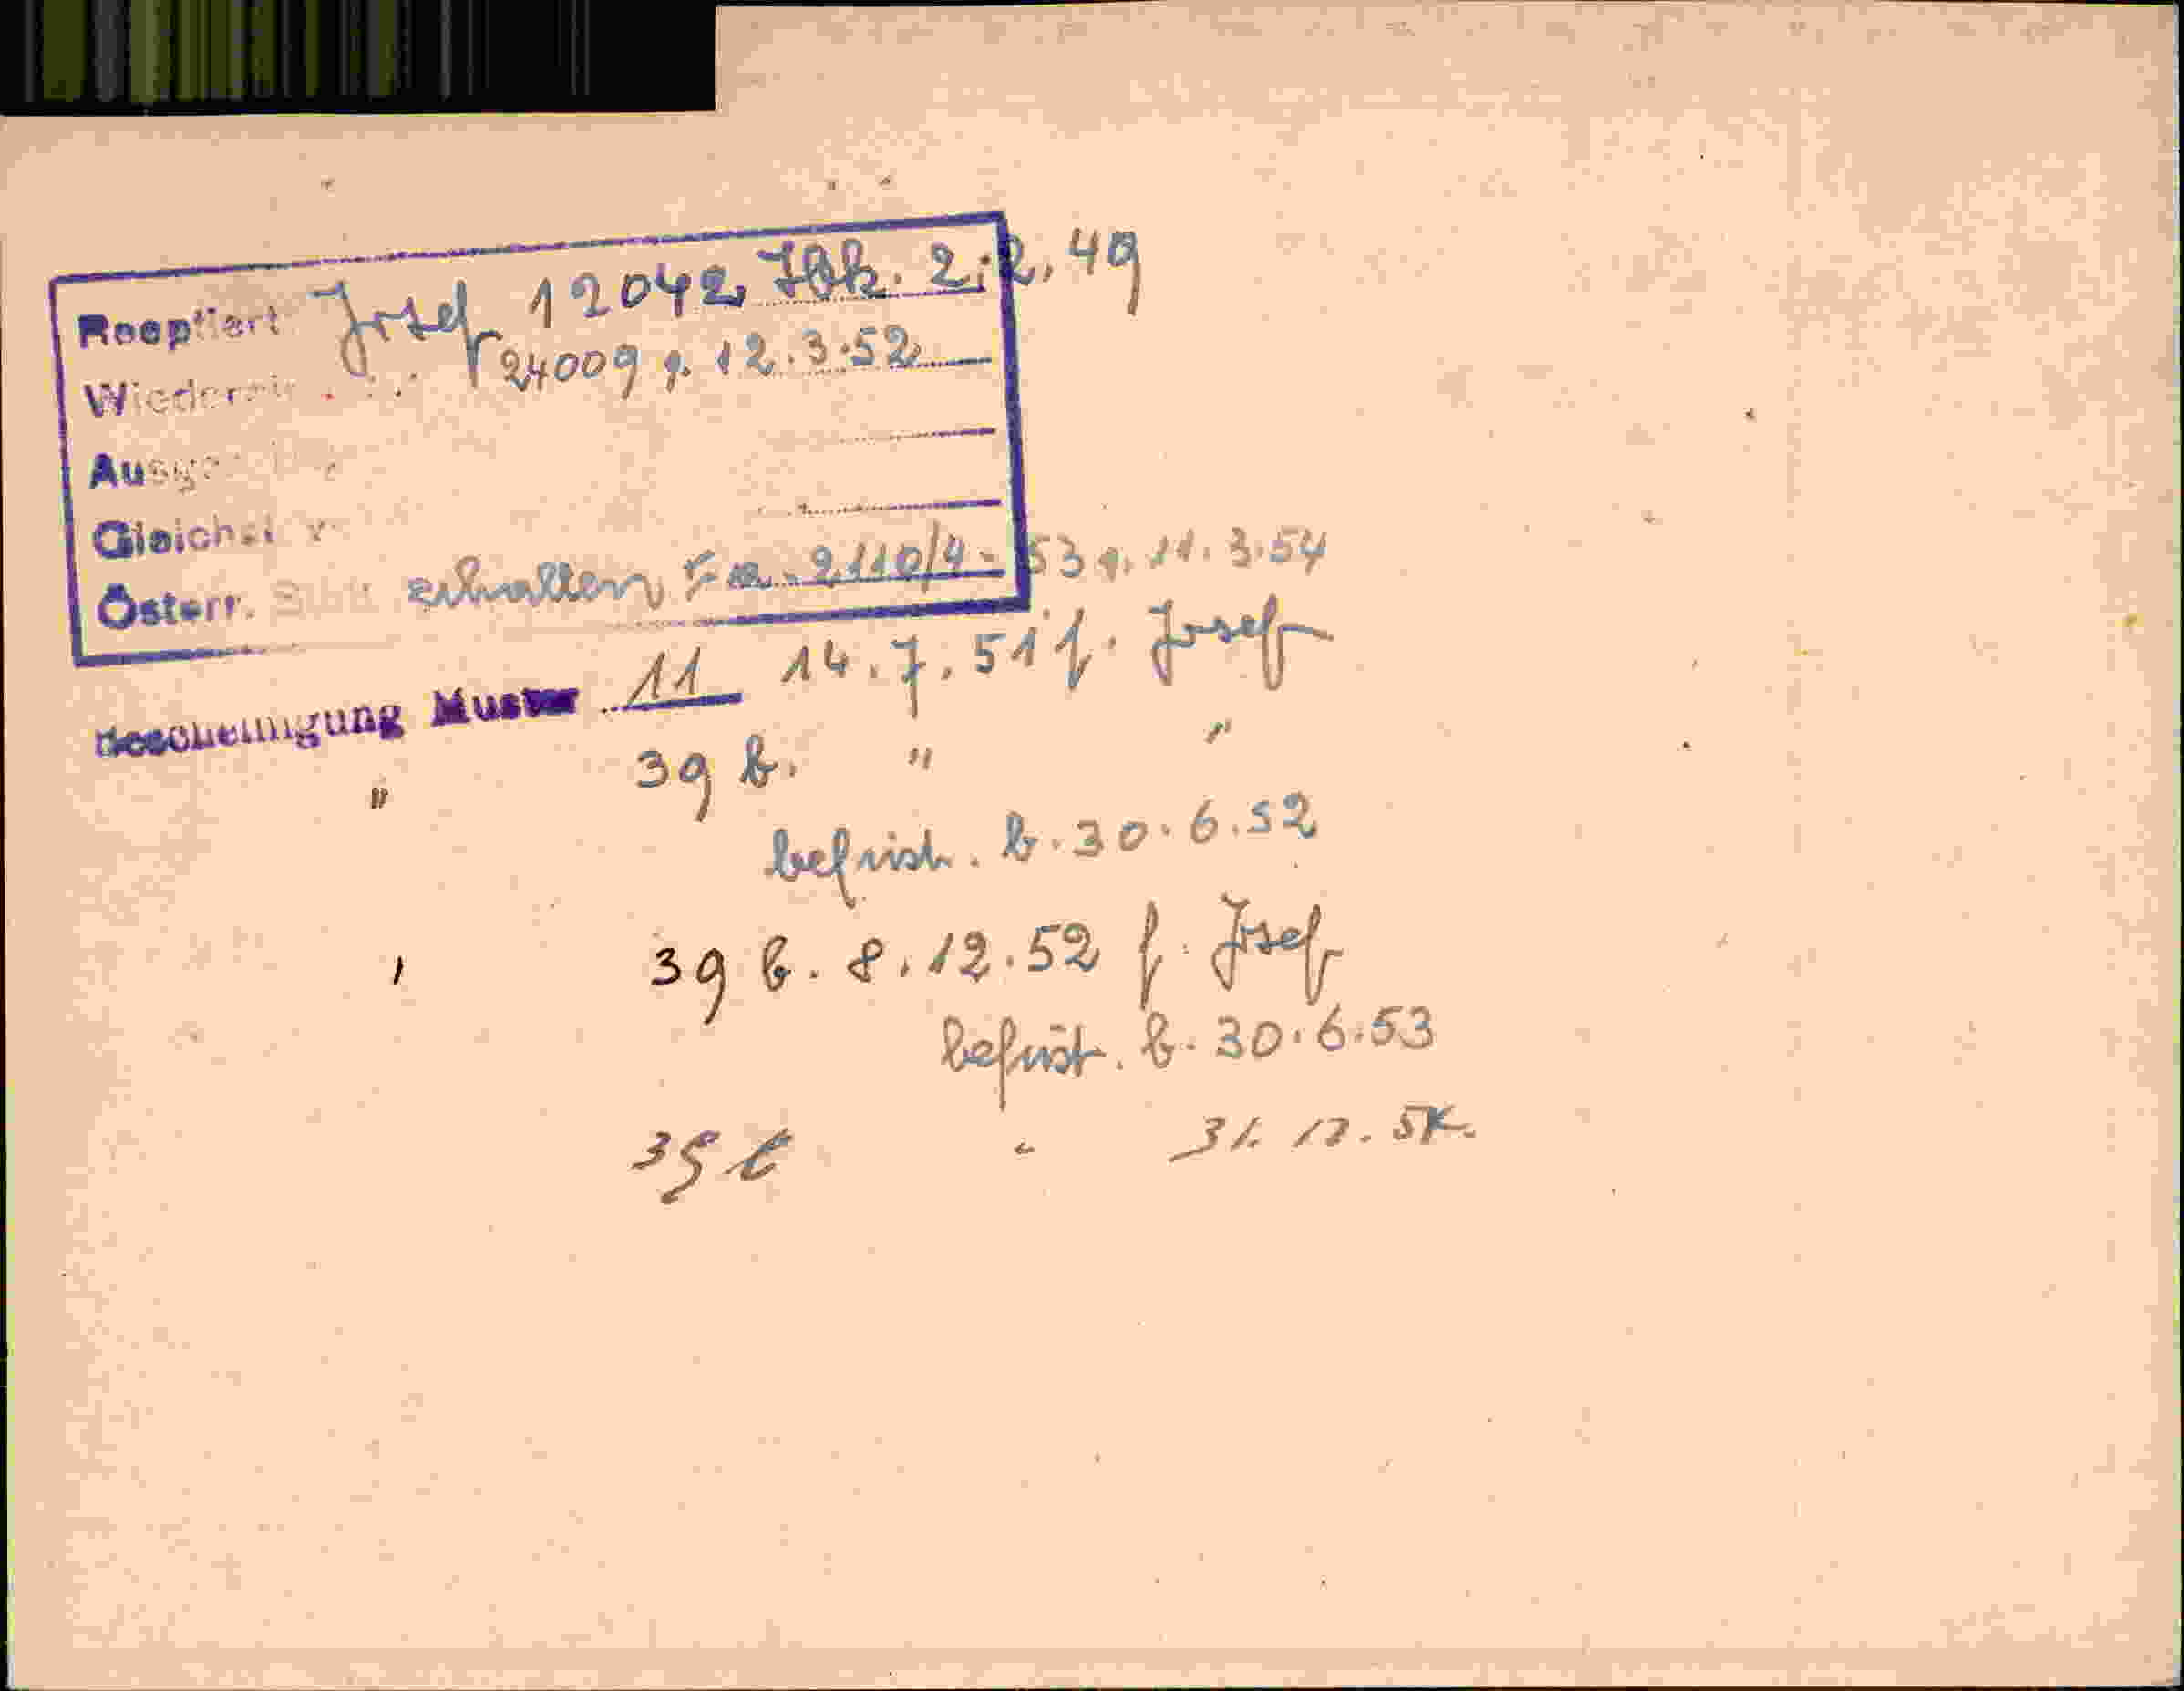 Reoptiert Josef 12042 Ibk. 2.2.49
24009 v. 12.3.52
Österr. erhalten 2110/4-53 v. 11.3.54
Bescheinigung Muster 11 14.7.51 f. Josef
" 39 b. " "
befrist. b. 30.6.52
" 39 b. 8.12.52 f. Josef
befrist. b. 30.6.53
39 b " 31.12.54